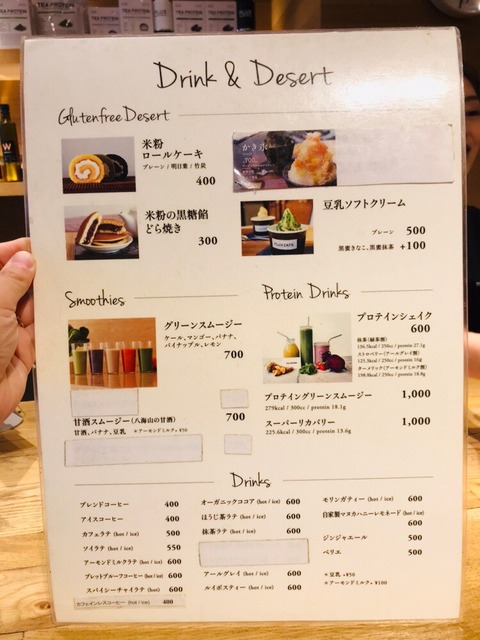 TEA PROTEIN
Drink & Desert
Glutenfree Desert
米粉
ロールケーキ
プレーン / 明日葉 / 竹炭
400
かき氷
米粉の黒糖餡
どら焼き
300
豆乳ソフトクリーム
プレーン 500
黒蜜きなこ、黒蜜抹茶 +100
Smoothies
グリーンスムージー
ケール、マンゴー、バナナ、
パイナップル、レモン
700
甘酒スムージー (八海山の甘酒) 700
甘酒、バナナ、豆乳 ※アーモンドミルク+¥50
Protein Drinks
プロテインシェイク
600
抹茶(緑茶割)
136.5kcal / 250cc / protein 27.1g
ストロベリー(アールグレイ割)
125.3kcal / 250cc / protein 16g
ターメリック(アーモンドミルク割)
198.8kcal / 250cc / protein 18.8g
プロテイングリーンスムージー 1,000
279kcal / 300cc / protein 18.1g
スーパーリカバリー 1,000
225.6kcal / 300cc / protein 13.6g
Drinks
ブレンドコーヒー 400
アイスコーヒー 400
カフェラテ (hot / ice) 500
ソイラテ (hot / ice) 550
アーモンドミルクラテ (hot / ice) 600
ブレットプルーフコーヒー (hot / ice) 600
スパイシーチャイラテ (hot / ice) 600
カフェインレスコーヒー (hot / ice) 400
オーガニックココア (hot / ice) 600
ほうじ茶ラテ (hot / ice) 600
抹茶ラテ (hot / ice) 600
アールグレイ (hot / ice) 600
ルイボスティー (hot / ice) 600
モリンガティー (hot / ice) 600
自家製マヌカハニーレモネード (hot / ice)
600
ジンジャエール 500
ペリエ 500
※豆乳 +¥50
※アーモンドミルク +¥100